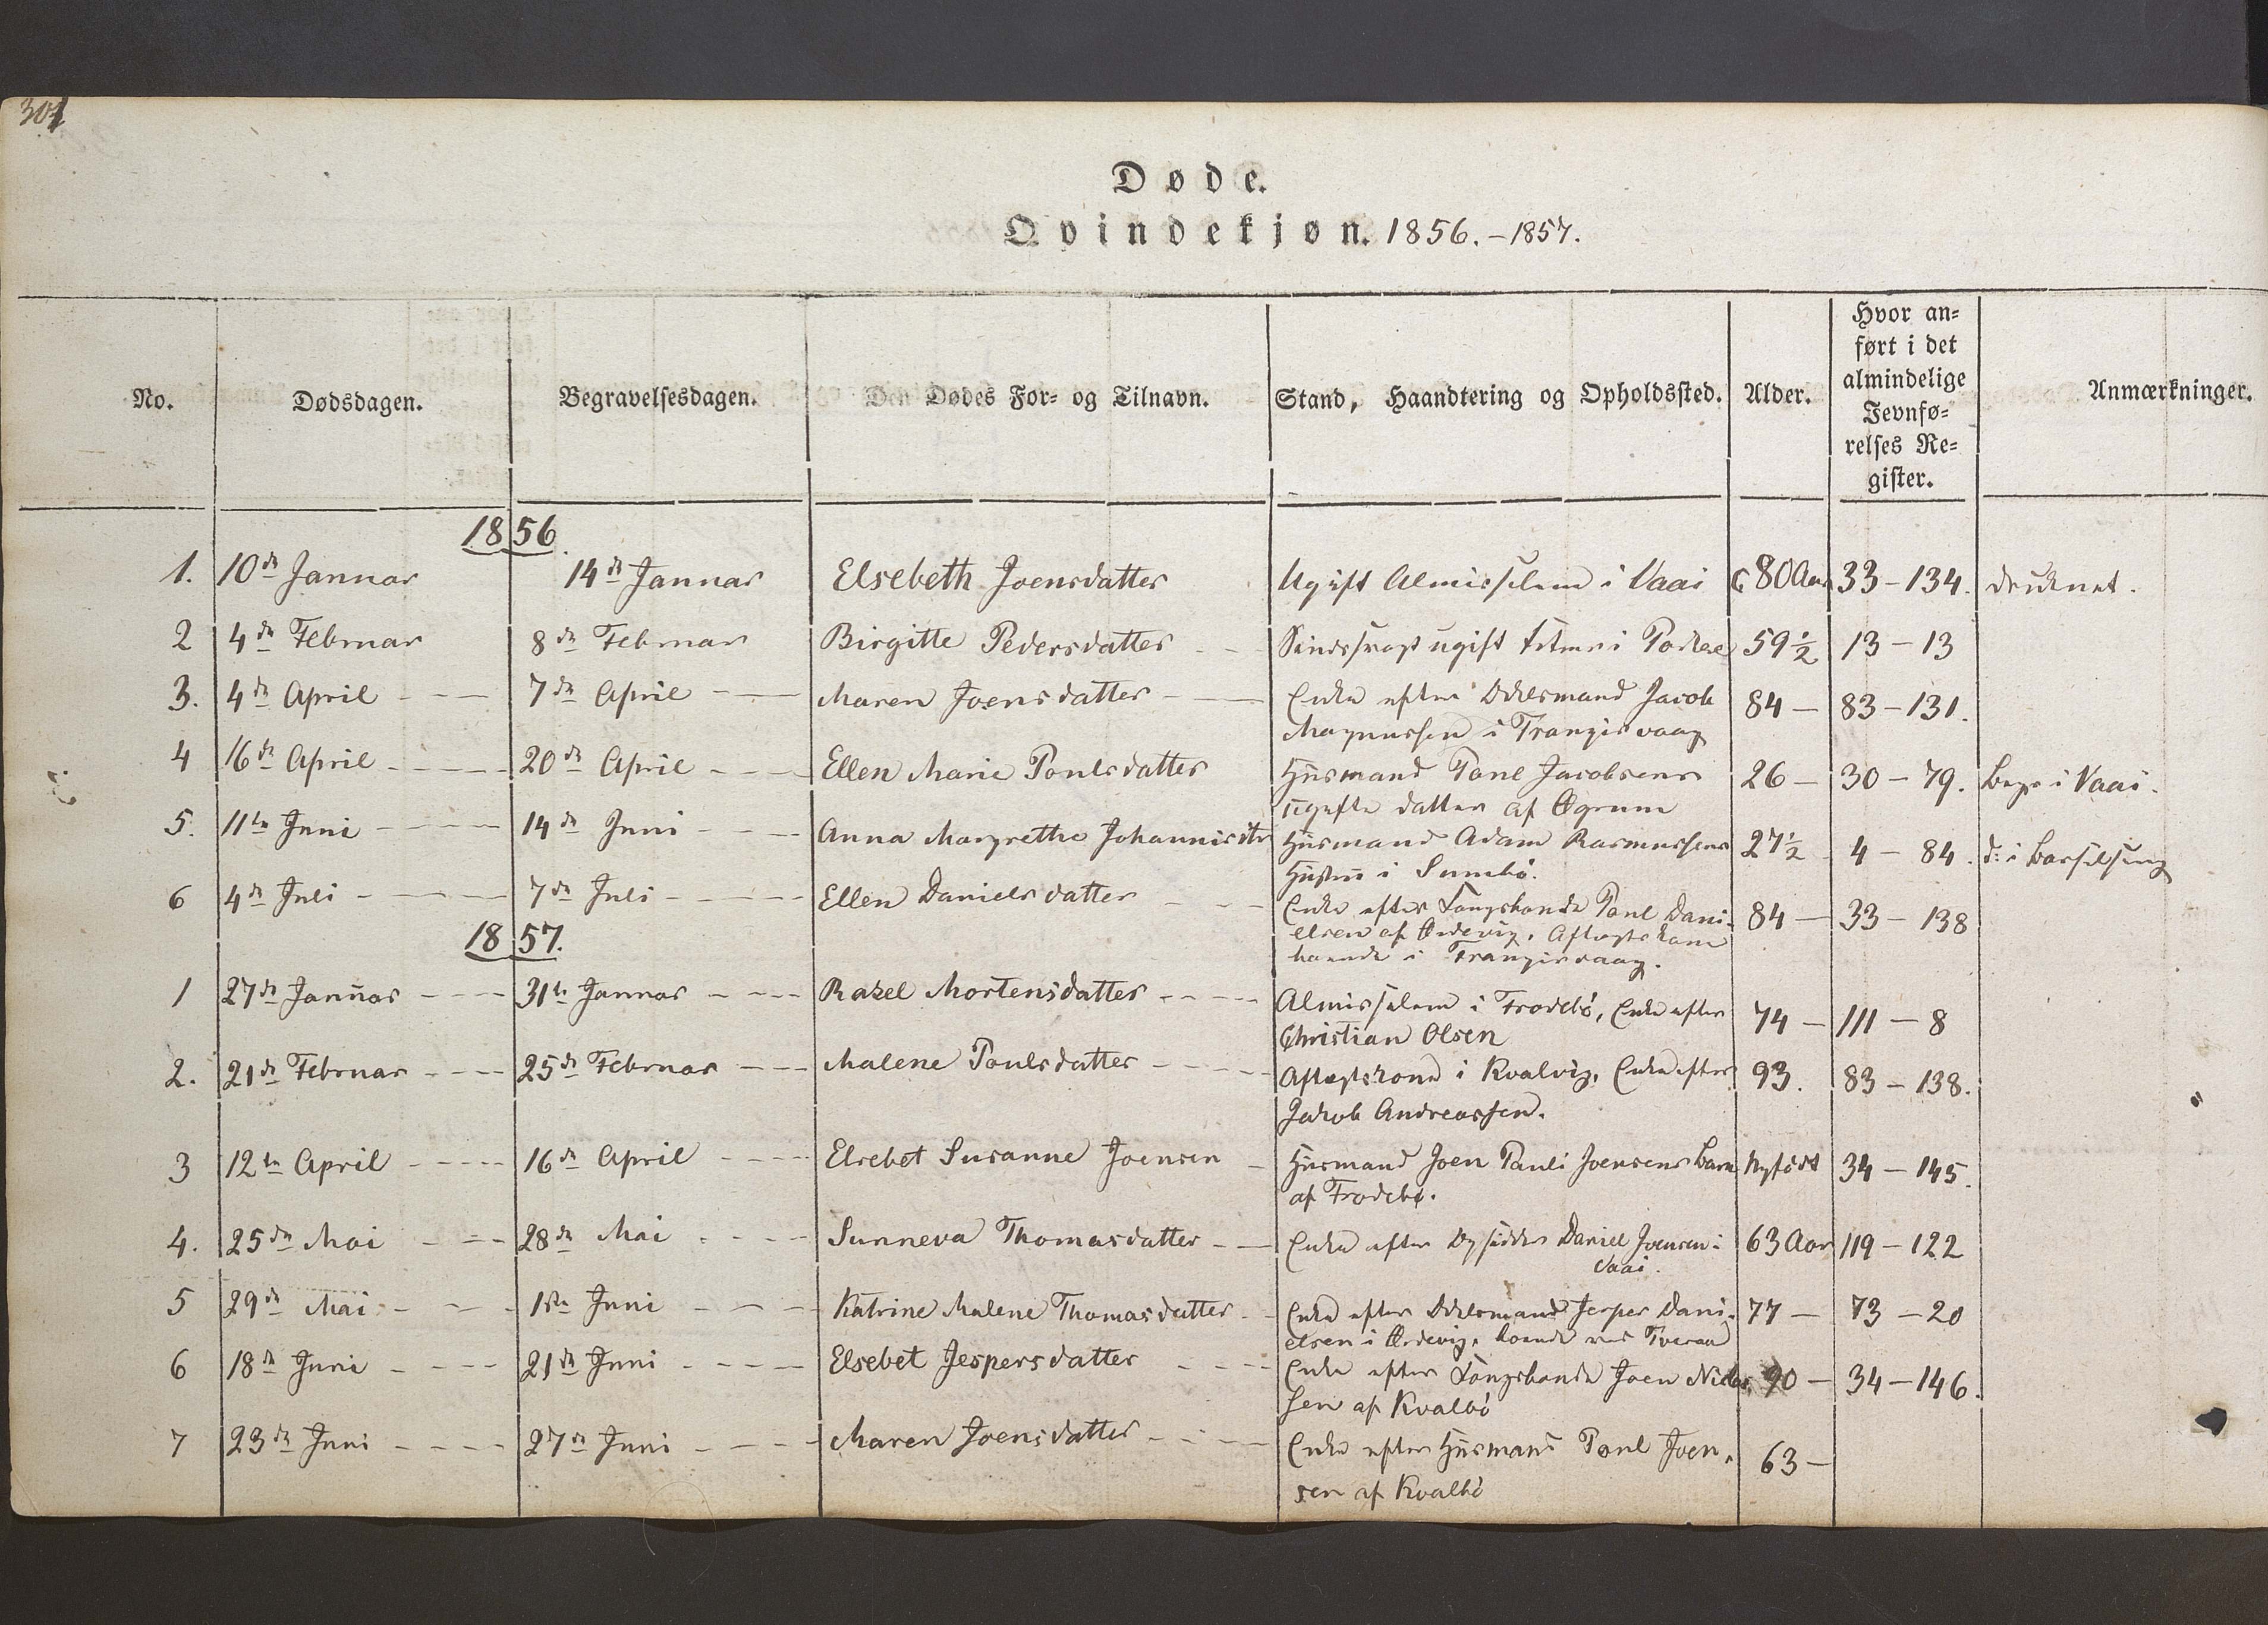 301
Døde.
Qvindekjøn. 1856. - 1857.
No. Dødsdagen. Begravelsesdagen. Den Dødes For- og Tilnavn. Stand, Haandtering og Opholdssted. Alder. Hvor an-
ført i det
almindelige
Jevnfø-
relses Re-
gister. Anmærkninger.
1856.
1. 10de Januar 14de Januar Elsebeth Joensdatter Ugift Almisselem i Vaai C 80 Aar 33-134. druknet.
2 4de Februar 8de Februar Birgitte Pedersdatter Sindssvagt ugift i Porkere 59½ 13-13
3. 4de April 7de April Maren Joensdatter Enke efter Odelsmand Jacob 84 - 83-131.
Magnussen i Trangisvaag
4 16de April 20de April Ellen Marie Poulsdatter Huusmand Poul Jacobsens 26 - 30-79. Begr i Vaai.
ugifte datter af Øgrum
5. 11te Juni 14de Juni Anna Margrethe Johannisdtr Huusmand Adam Rasmussens 27½ 4-84. d: i Barselseng
Hustru i Sumbø.
6 4de Juli 7de Juli Ellen Danielsdatter Enke efter Kongsbonde Poul Dani- 84 - 33-138
elsen af Ørdevig, Aftægtskone
boende i Trangisvaag.
1857.
1 27de Januar 31te Januar Rakel Mortensdatter Almisselem i Frodebø, Enke efter 74 - 111-8
Christian Olsen
2. 21de Februar 25de Februar Malene Poulsdatter Aftægtskone i Kvalvig, Enke efter 93. 83-138.
Jakob Andreassen.
3 12te April 16de April Elsebet Susanne Joensen Huusmand Joen Pauli Joensens Barn Nyfødt 34-145.
af Frodebø.
4. 25de Mai 28de Mai Sunneva Thomasdatter Enke efter Daniel Joensen i 63 Aar 119-122
Vaai.
5 29de Mai 1ste Juni Katrine Malene Thomasdatter Enke efter Odelsmand Jesper Dani- 77 - 73-20
elsen i Ørdevig, boende ved Tveraa
6 18de Juni 21de Juni Elsebet Jespersdatter Enke efter Kongsbonde Joen Niclas- 90 - 34-146.
sen af Kvalbø
7 23de Juni 27de Juni Maren Joensdatter Enke efter Huusmand Poul Joen- 63 -
sen af Kvalbø